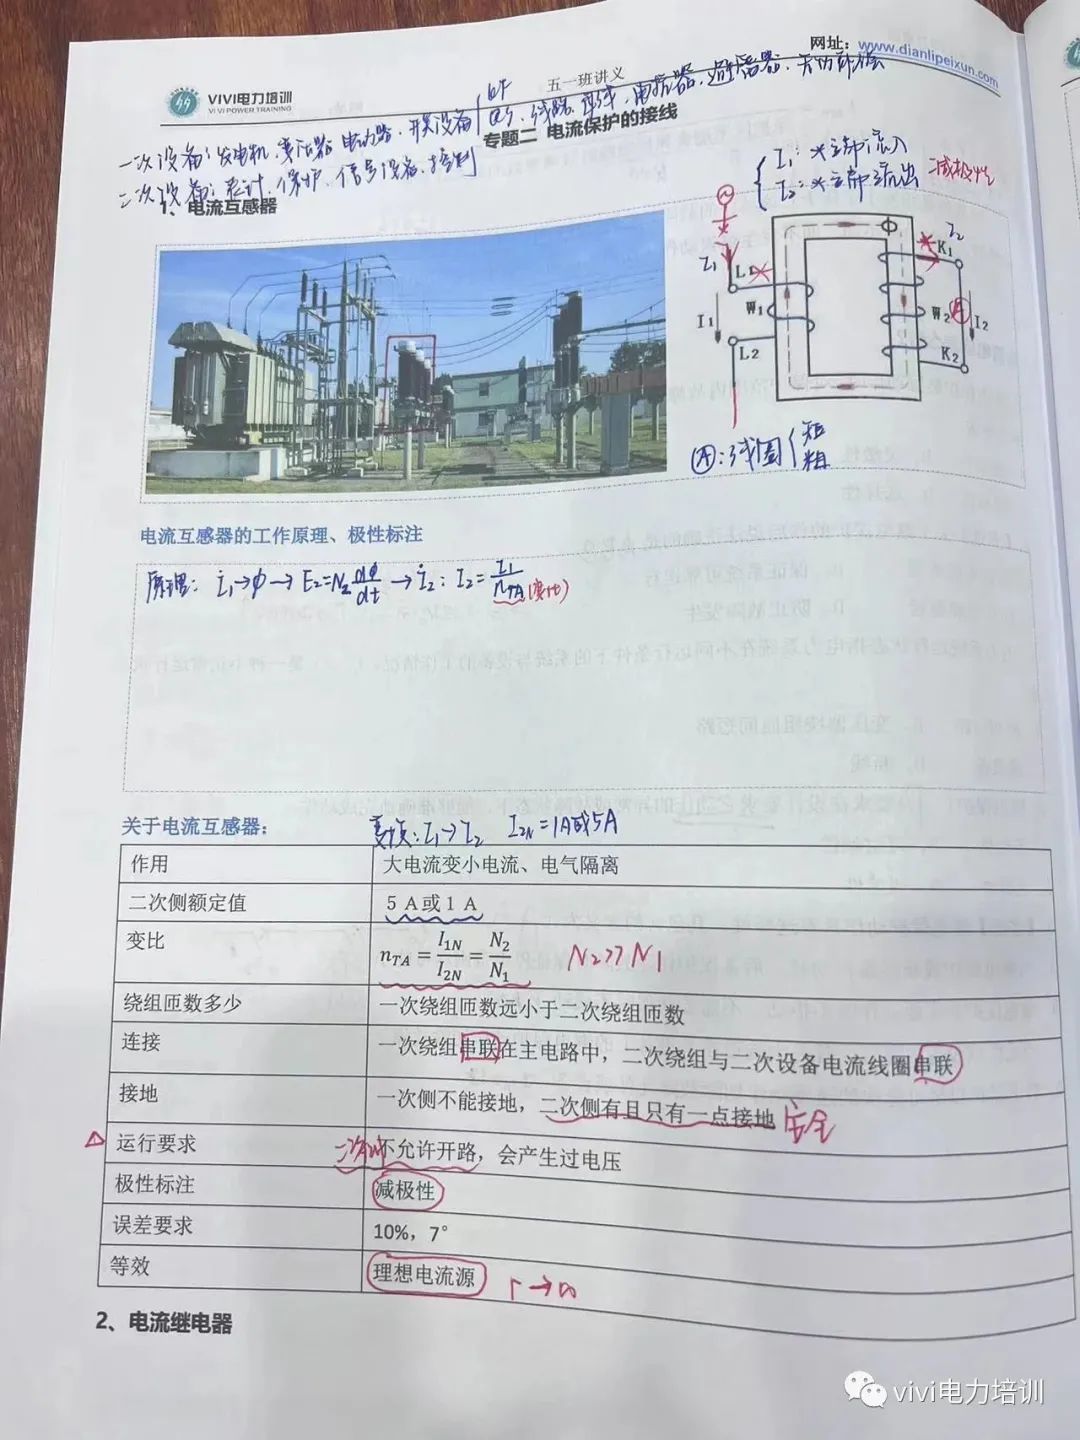 网址：www.dianlipeixun.com
五一班讲义
VIVI电力培训
VIVI POWER TRAINING
一次设备：发电机、变压器、电动路、开关设备
二次设备：表计、保护、信号设备、控制
专题二 电流保护的接线
1、电流互感器
I₁：*立部流入
I₂：*立部流出
减极性
I₁
L1
I₁
W₁
L2
I₂
K₁
W₂
A
I₂
K₂
Ⓐ：线圈
短
粗
电流互感器的工作原理、极性标注
原理： İ₁→ϕ→E₂=N₂dϕ/dt→İ₂：I₂=I₁/nTA(变比)
关于电流互感器：
变换：I₁→I₂ I₂N=1A或5A
作用 大电流变小电流、电气隔离
二次侧额定值 5 A或1 A
变比 nTA=I1N/I2N=N2/N1 N₂>>N₁
绕组匝数多少 一次绕组匝数远小于二次绕组匝数
连接 一次绕组串联在主电路中，二次绕组与二次设备电流线圈串联
接地 一次侧不能接地，二次侧有且只有一点接地 安全
△ 运行要求 二次侧不允许开路，会产生过电压
极性标注 减极性
误差要求 10%，7°
等效 理想电流源 r→∞
2、电流继电器
vivi电力培训